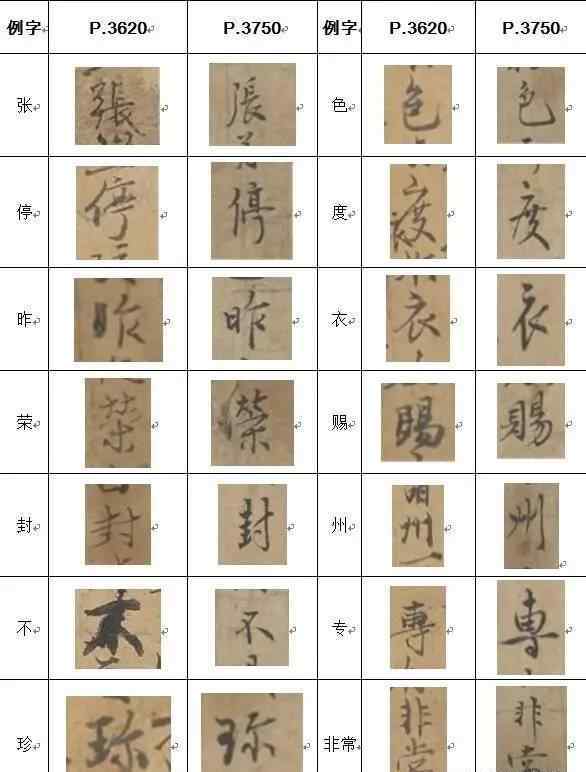 例字 P.3620 P.3750 例字 P.3620 P.3750
张 張 張 色 色 色
停 停 停 度 度 度
昨 昨 昨 衣 衣 衣
荣 榮 榮 赐 賜 賜
封 封 封 州 州 州
不 不 不 专 專 專
珍 珎 珎 非常 非常 非常